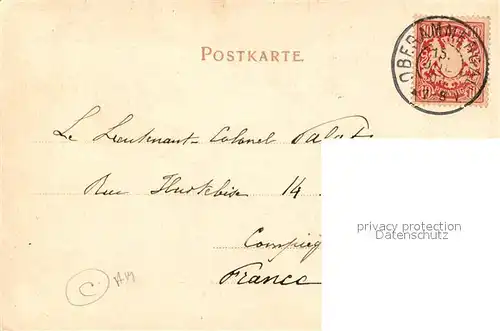 POSTKARTE.
OBERAMMERGAU
15.
Le Lieutenant-Colonel Palat
Rue Hurtebise 14
Compièg
France
C
privacy protection
Datenschutz